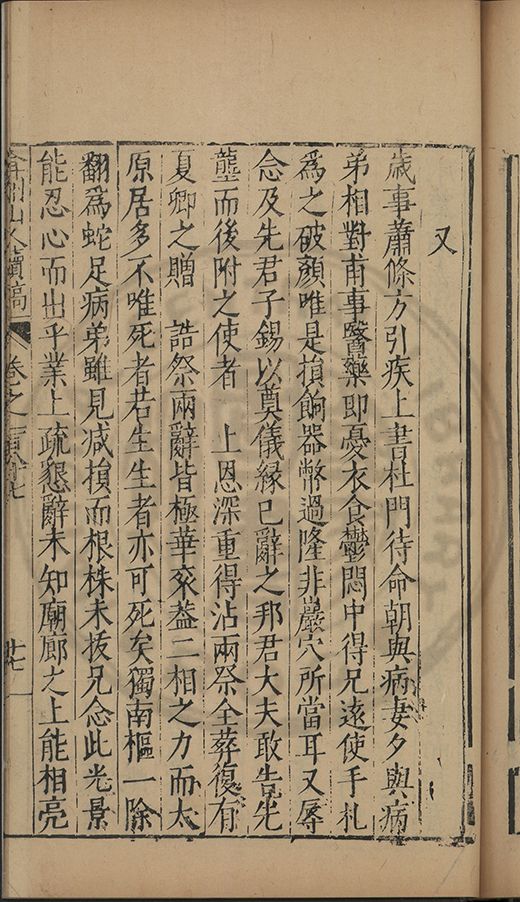 又
歲事蕭條方引疾上書杜門待命朝與病妻夕與病
弟相對甫事醫藥即憂衣食鬱悶中得兄遠使手札
爲之破顏唯是損餉器幣過隆非巖穴所當耳又辱
念及先君子錫以奠儀緣已辭之邦君大夫敢告先
壟而後附之使者　上恩深重得沾兩祭全葬復有
夏卿之贈　誥祭兩辭皆極華衮葢二相之力而太
原居多不唯死者若生生者亦可死矣獨南樞一除
翻爲蛇足病弟雖見减損而根株未拔兄念此光景
能忍心而出乎業上疏懇辭未知廟廊之上能相亮
弇州山人續稿
卷之一百
十七